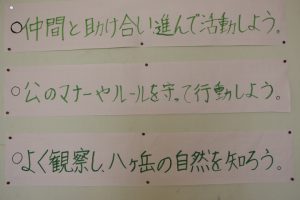 ○仲間と助け合い進んで活動しよう。
○公のマナーやルールを守って行動しよう。
○よく観察し、八ヶ岳の自然を知ろう。